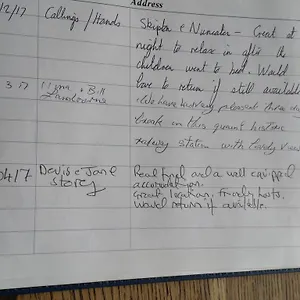 Address
12/17 Callings / Hands Skipton & Nuneaton – Great at
night to relax in after the
children went to bed. Would
love to return if still available
3 17 + Bill We have had very pleasant
break in this quaint historic
railway station with lovely views
04/17 David & Jane Storey Real find and a well equipped
accomodation.
Great location, friendly hosts.
Would return if available.